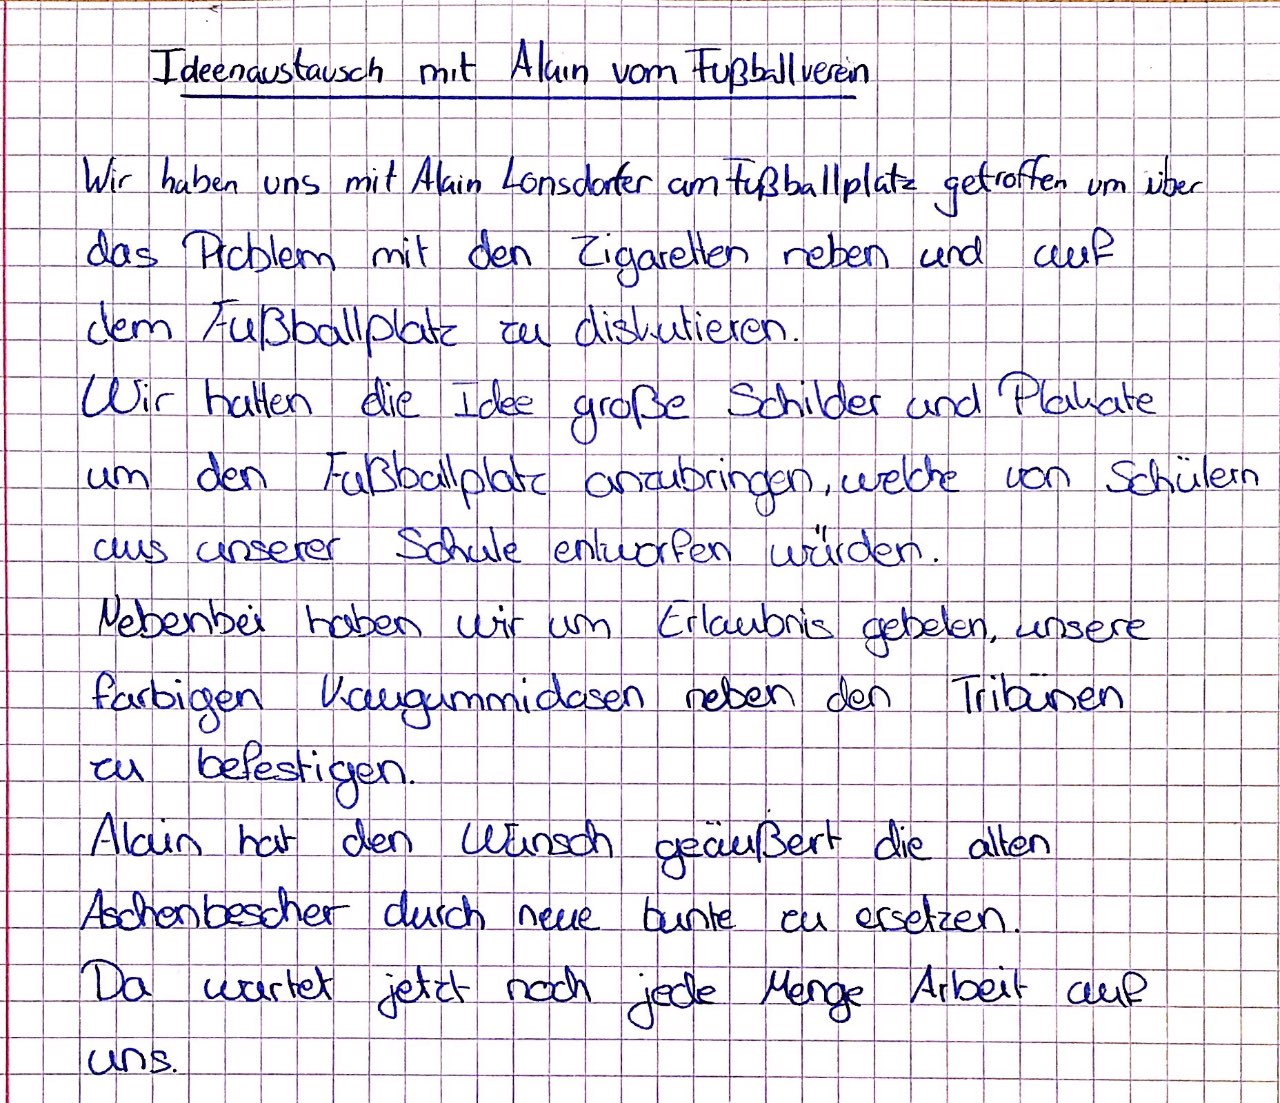 Ideenaustausch mit Alain vom Fußballverein
Wir haben uns mit Alain Lonsdorfer am Fußballplatz getroffen um über
das Problem mit den Zigaretten neben und auf
dem Fußballplatz zu diskutieren.
Wir hatten die Idee große Schilder und Plakate
um den Fußballplatz anzubringen, welche von Schülern
aus unserer Schule entworfen würden.
Nebenbei haben wir um Erlaubnis gebeten, unsere
farbigen Kaugummidosen neben den Tribünen
zu befestigen.
Alain hat den Wunsch geäußert die alten
Aschenbescher durch neue bunte zu ersetzen.
Da wartet jetzt noch jede Menge Arbeit auf
uns.